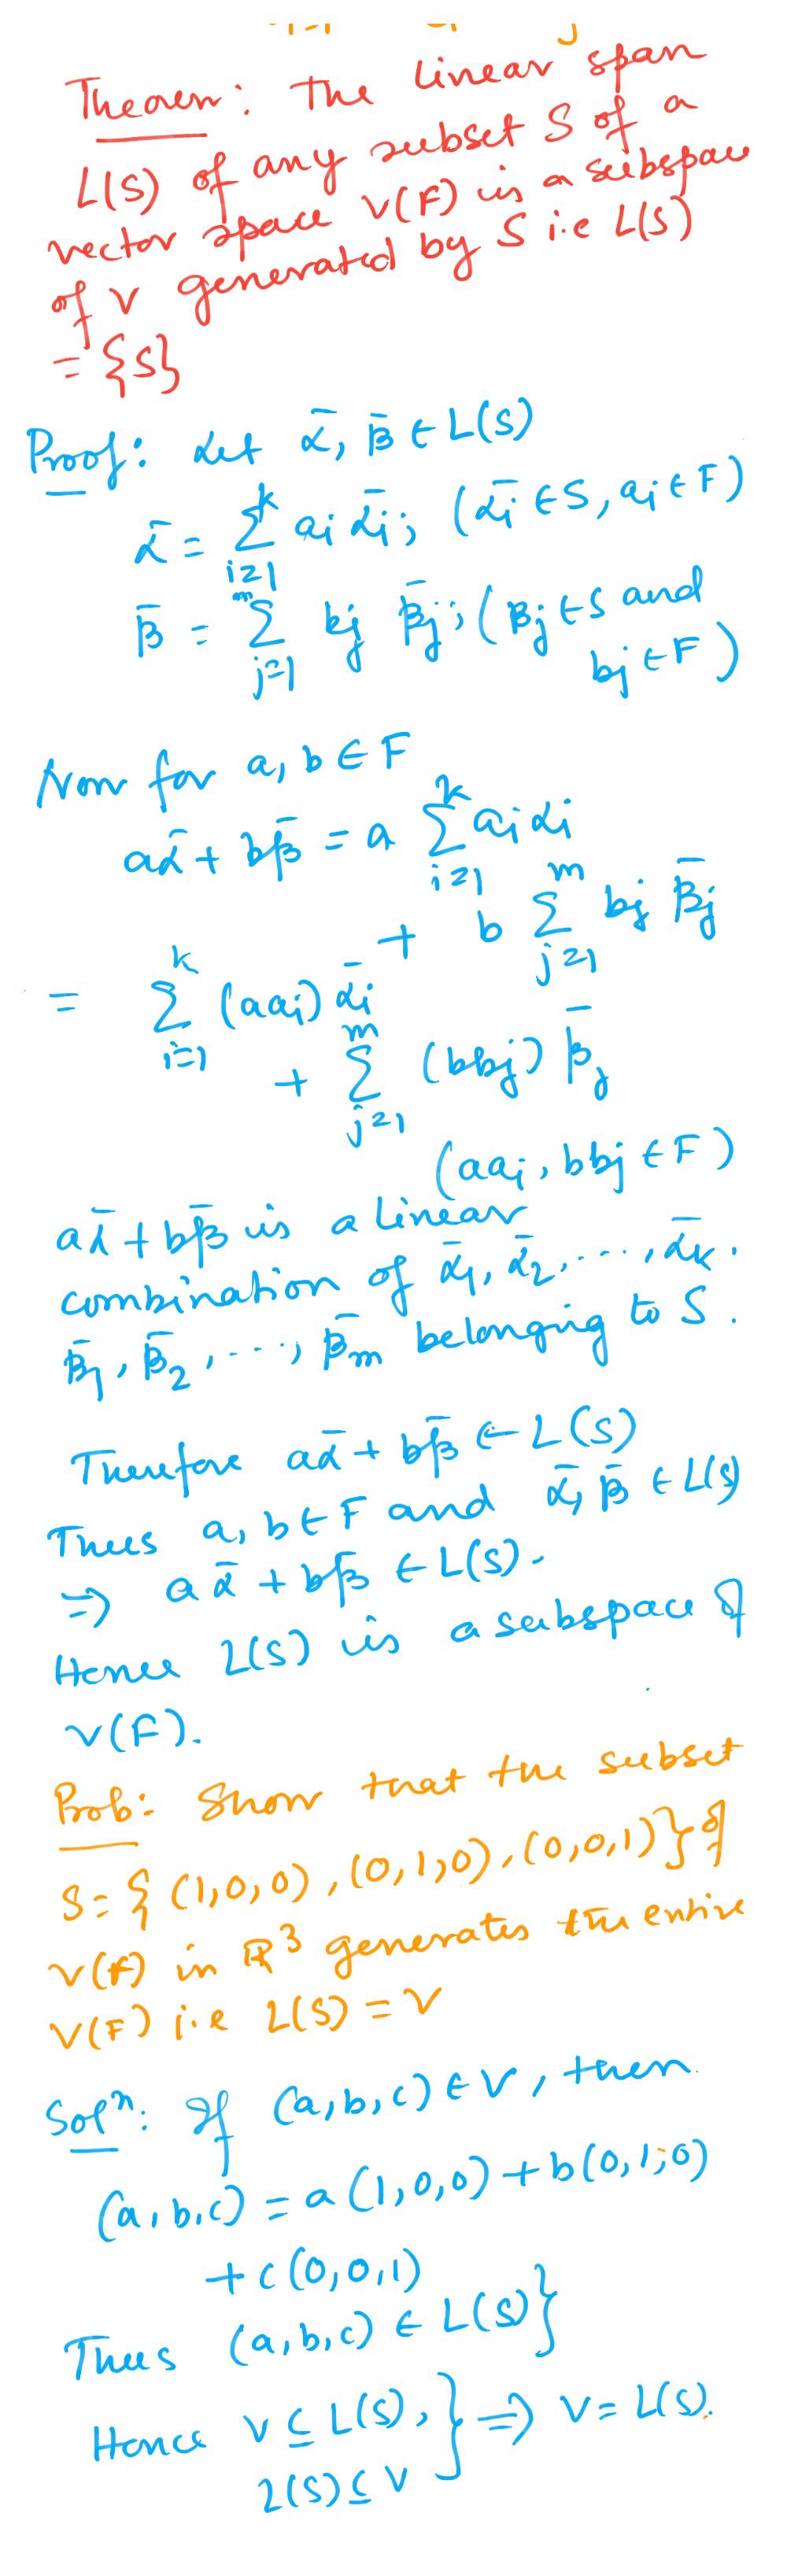 Theorem: The Linear span
L(S) of any subset S of a
vector space V(F) is a subspace
of V generated by S i.e L(S)
= {S}
Proof: Let ᾱ, β̄ ∈ L(S)
ᾱ = ∑_{i=1}^{k} aᵢ ᾱᵢ; (ᾱᵢ ∈ S, aᵢ ∈ F)
β̄ = ∑_{j=1}^{m} bⱼ β̄ⱼ; (βⱼ ∈ S and
bⱼ ∈ F)
Now for a, b ∈ F
aᾱ + bβ̄ = a ∑_{i=1}^{k} aᵢ αᵢ
+ b ∑_{j=1}^{m} bⱼ β̄ⱼ
= ∑_{i=1}^{k} (aaᵢ) ᾱᵢ
+ ∑_{j=1}^{m} (bbⱼ) β̄ⱼ
(aaᵢ, bbⱼ ∈ F)
aᾱ + bβ̄ is a Linear
combination of ᾱ₁, ᾱ₂, ..., ᾱₖ.
β̄₁, β̄₂, ..., β̄ₘ belonging to S.
Therefore aᾱ + bβ̄ ∈ L(S)
Thus a, b ∈ F and ᾱ, β̄ ∈ L(S)
⇒ aᾱ + bβ̄ ∈ L(S).
Hence L(S) is a subspace of
V(F).
Prob: Show that the subset
S = { (1,0,0), (0,1,0), (0,0,1)} of
V(F) in ℝ³ generates the entire
V(F) i.e L(S) = V
Solⁿ: If (a,b,c) ∈ V, then
(a,b,c) = a(1,0,0) + b(0,1,0)
+ c(0,0,1)
Thus (a,b,c) ∈ L(S)}
Hence V ⊆ L(S), } ⇒ V = L(S).
L(S) ⊆ V